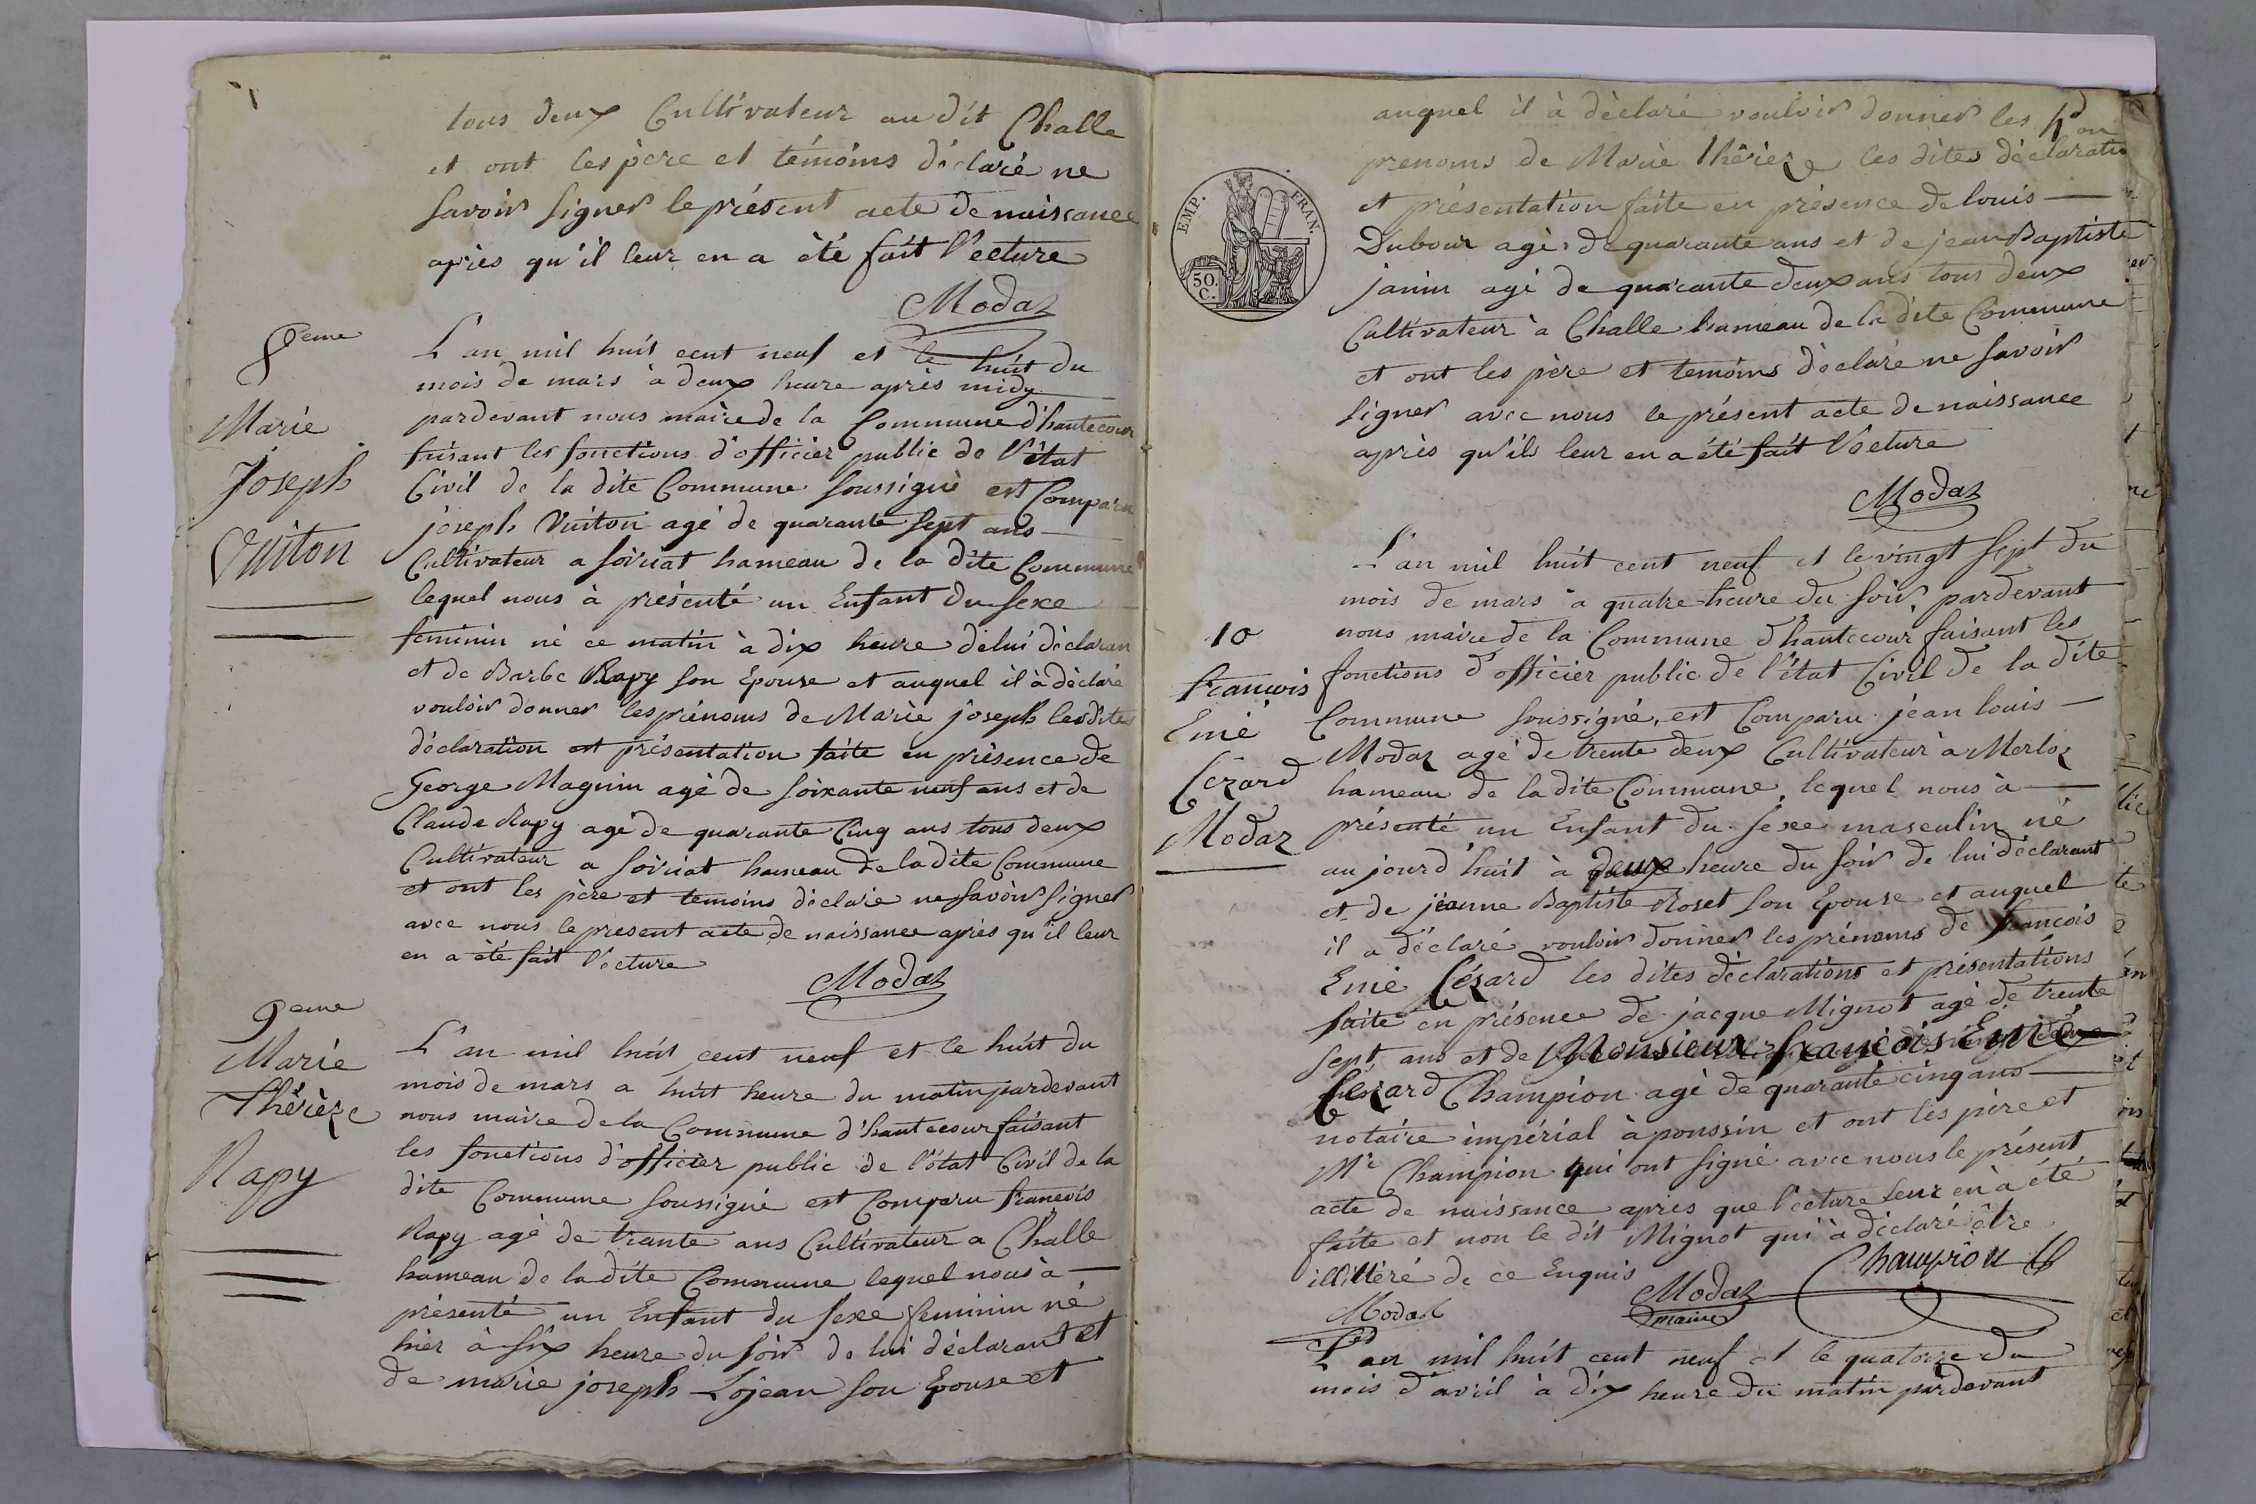 tous deux Cultivateur au dit Challe
et ont les père et témoins déclaré ne
savoir signer le présent acte de naissance
après qu'il leur en a été fait l'ecture
Modaz
8eme
Marie
Joseph
Vuiton
L'an mil huit cent neuf et le huit du
mois de mars à deux heure après midy
pardevant nous maire de la Commune d'hautecour
faisant les fonctions d'officier public de l'état
Civil de la dite Commune soussigné est Comparu
joseph Vuiton agé de quarante sept ans
Cultivateur a soiriat hameau de la dite Commune
lequel nous à présenté un Enfant du sexe
feminin né ce matin à dix heure de lui déclaran
et de Barbe Rapy son Epouse et auquel il à déclaré
vouloir donner les prénoms de Marie joseph les dites
déclaration et présentation faite en présence de
George Magnin agé de soixante neuf ans et de
Claude Rapy agé de quarante Cinq ans tous deux
Cultivateur a soiriat hameau de la dite Commune
et ont les père et temoins déclaré ne savoir signer
avec nous le present acte de naissance après qu'il leur
en a été fait l'ecture
Modaz
9eme
Marie
Thérèze
Rapy
L'an mil huit cent neuf et le huit du
mois de mars a huit heure du matin pardevant
nous maire de la Commune d'hautecour faisant
les fonctions d'officier public de l'état Civil de la
dite Commune soussigné est Comparu francois
Rapy agé de trante ans Cultivateur a Challe
hameau de la dite Commune lequel nous à
présenté un Enfant du sexe feminin né
hier à six heure du soir de lui déclarant et
de marie joseph Lojean son Epouse et
auquel il à déclaré vouloir donner les
prenoms de Marie thérèze les dites déclaratio
et présentation faite en présence de louis
Dubour agé de quarante ans et de jean Baptiste
janin agé de quarante deux ans tous deux
Cultivateur à Challe hameau de la dite Commune
et ont les père et temoins déclaré ne savoir
signer avec nous le présent acte de naissance
après qu'ils leur en a été fait l'ecture
Modaz
EMP. FRAN.
50.
C.
10
francois
Emé
Cézard
Modaz
L'an mil huit cent neuf et le vingt sept du
mois de mars à quatre heure du soir, pardevant
nous maire de la Commune d'hautecour faisant les
fonctions d'officier public de l'état Civil de la dite
Commune soussigné, est Comparu jean louis
Modaz agé de trente deux Cultivateur à Merloz
hameau de la dite Commune, lequel nous à
présenté un Enfant du sexe masculin né
aujourd'huit à deux heure du soir de lui déclarant
et de jeanne Baptiste Roset son Epouse et auquel
il a déclaré vouloir donner les prénoms de francois
Emé Cézard les dites déclarations et présentations
faite en présence de jacque Mignot agé de trente
sept ans et de Monsieur françois Emé
Cézard Champion agé de quarante cinq ans
notaire impérial à poussin et ont les père et
Mr Champion qui ont signé avec nous le présent
acte de naissance après que l'ecture leur en à été
faite et non le dit Mignot qui à déclaré être
illitéré de ce Enquis
Champion
Modaz
Modaz
maire
L'an mil huit cent neuf et le quatorze du
mois d'avril à dix heure du matin pardevant